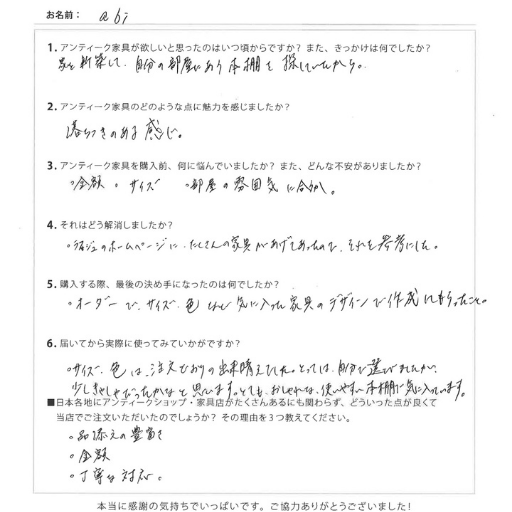 お名前： abi
1. アンティーク家具が欲しいと思ったのはいつ頃からですか？ また、きっかけは何でしたか？
家を新築して、自分の部屋にあう本棚を探していたから。
2. アンティーク家具のどのような点に魅力を感じましたか？
落ちつきのある感じ。
3. アンティーク家具を購入前、何に悩んでいましたか？ また、どんな不安がありましたか？
・金額 ・サイズ ・部屋の雰囲気に合うか。
4. それはどう解消しましたか？
のホームページに、たくさんの家具があげてあったので、それを参考にした。
5. 購入する際、最後の決め手になったのは何でしたか？
・オーダーで、サイズ、色 気に入った家具のデザインで作成してもらったこと。
6. 届いてから実際に使ってみていかがですか？
・サイズ、色は、注文どおりの出来晴えでした。とっては、自分で選びましたが、
少しきゃしゃだったかなと思います。とても、おしゃれな、使いやすい本棚で気に入っています。
■日本各地にアンティークショップ・家具店がたくさんあるにも関わらず、どういった点が良くて
当店でご注文いただいたのでしょうか？ その理由を３つ教えてください。
・品揃えの豊富さ
・金額
・丁寧な対応。
本当に感謝の気持ちでいっぱいです。ご協力ありがとうございました！